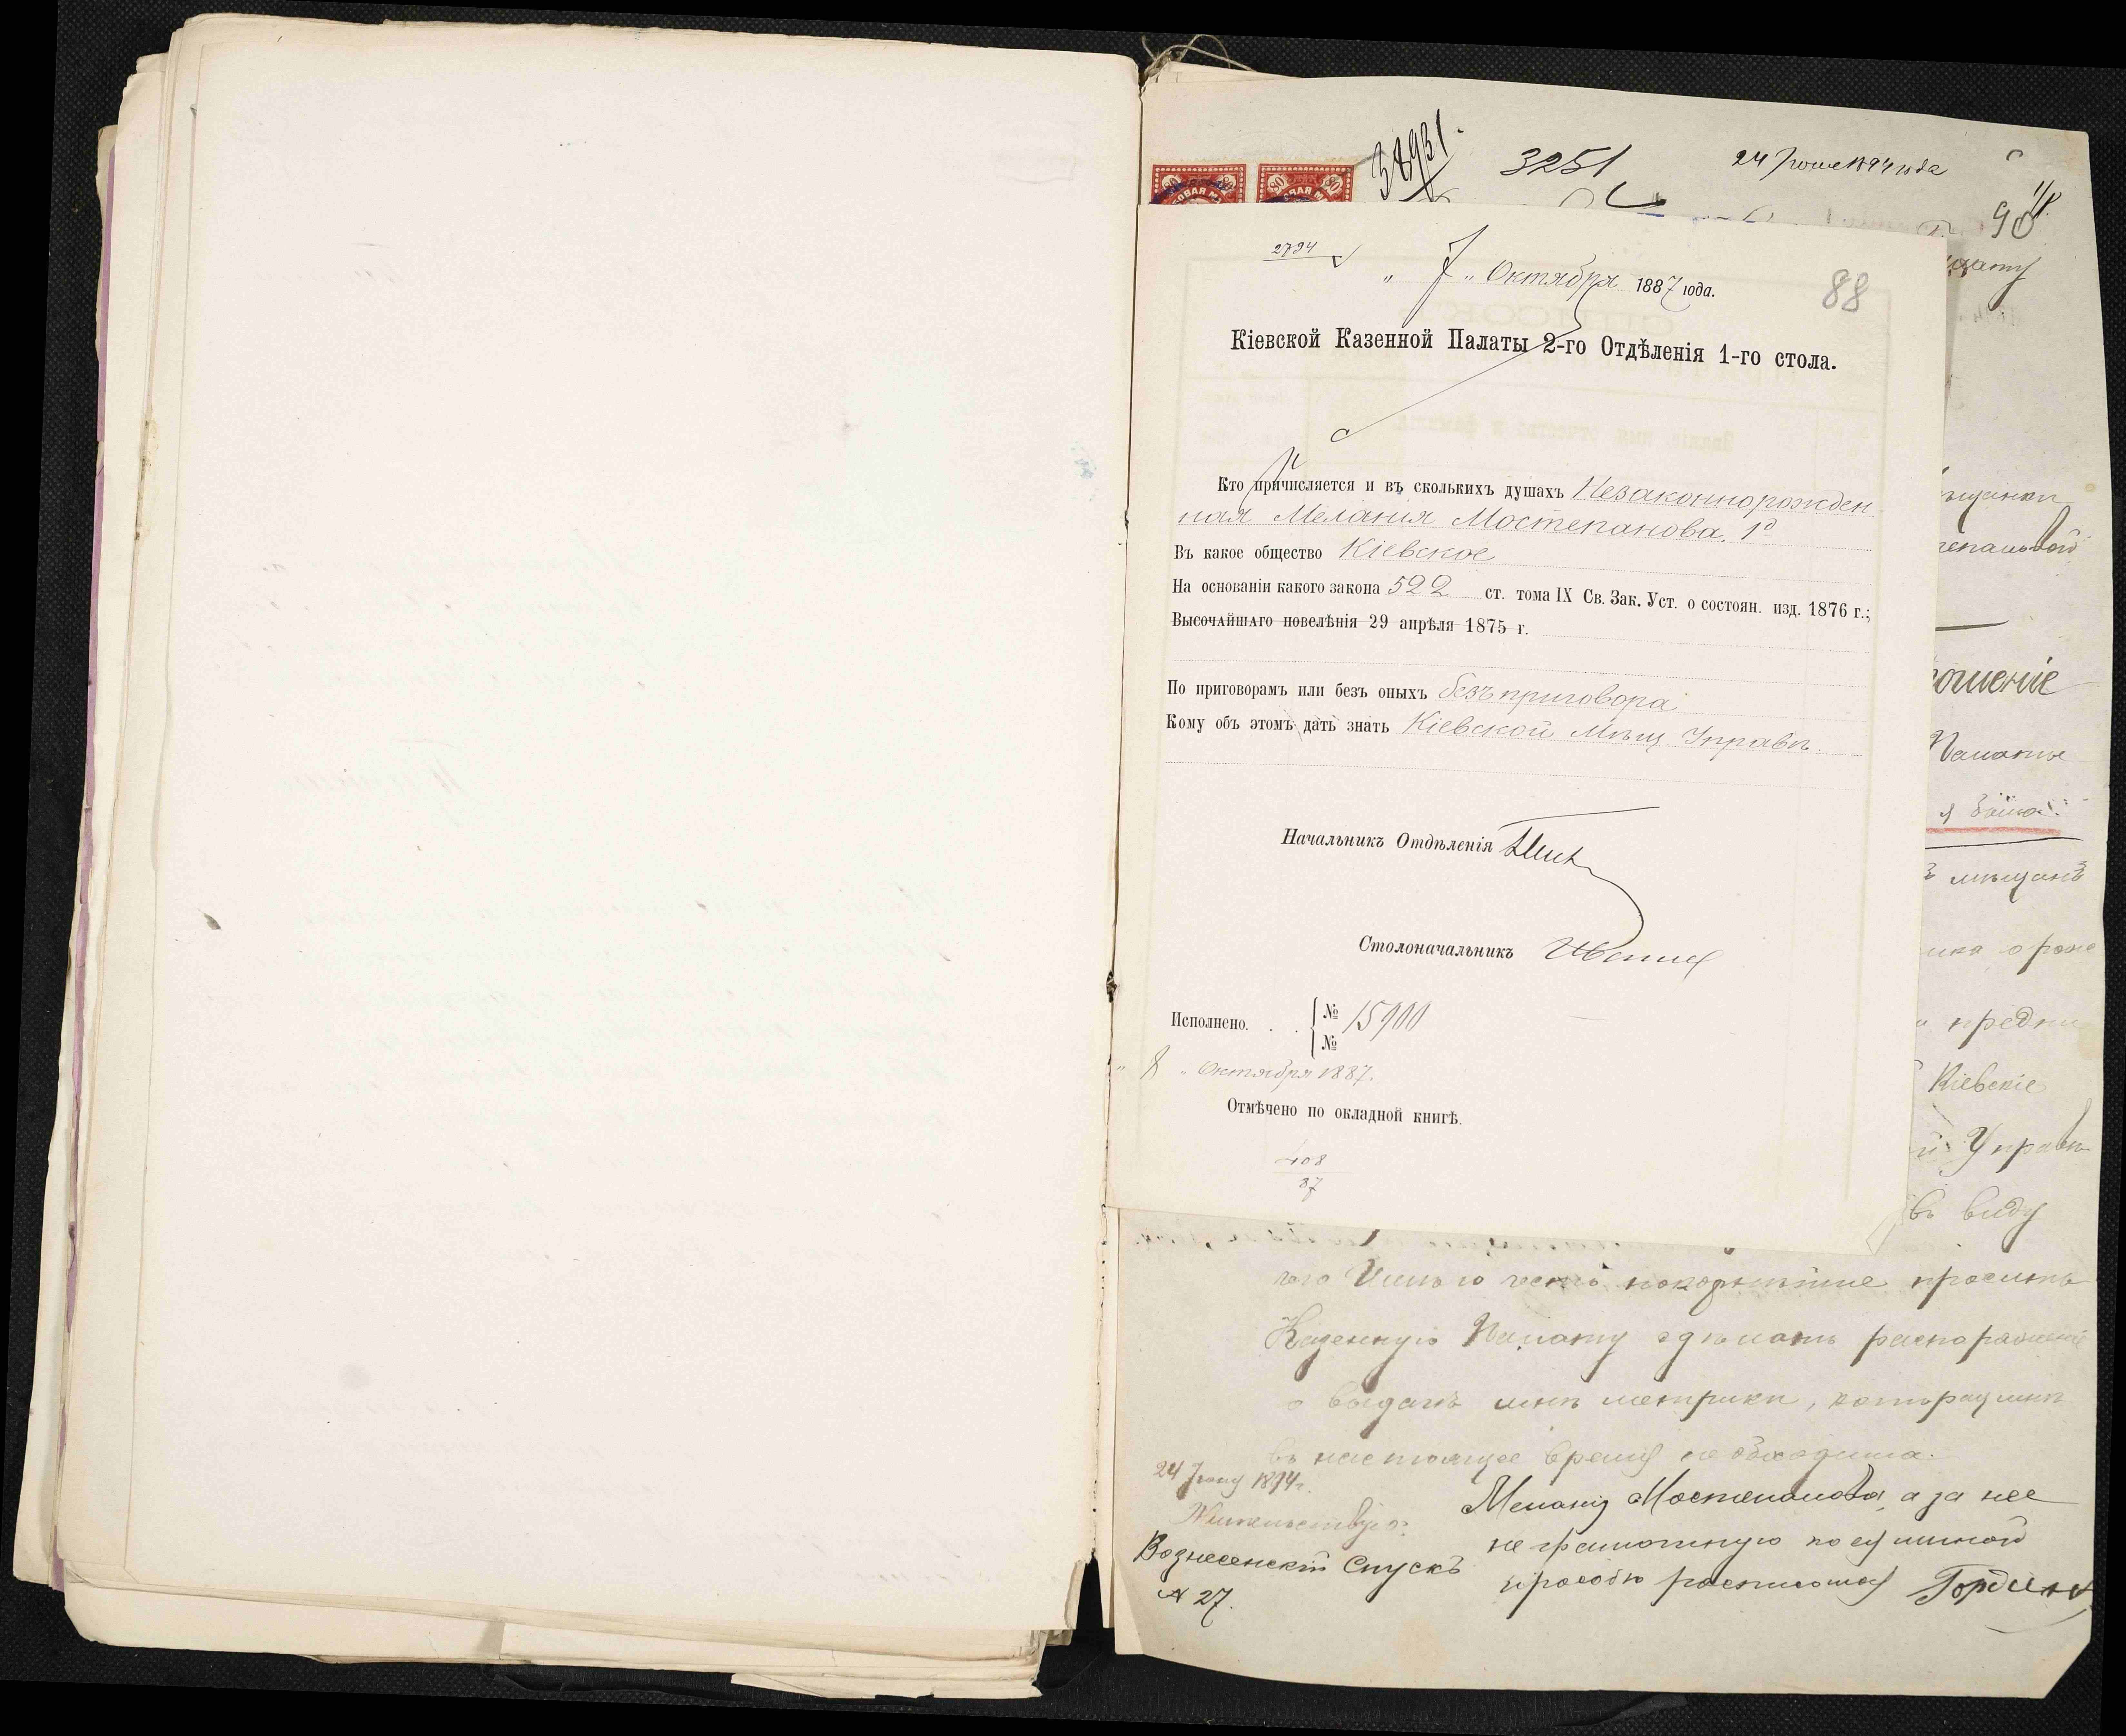 38931.
3251
24 Іюня 1894 года
90
2794
„ 7 „ Октября 1887 года.
88
Кіевской Казенной Палаты 2-го Отдѣленія 1-го стола.
Кто причисляется и въ сколькихъ душахъ Незаконнорожден-
ная Мелания Мостепанова. 1
Въ какое общество Кіевское
На основаніи какого закона 522 ст. тома IX Св. Зак. Уст. о состоян. изд. 1876 г.;
Высочайшаго повелѣнія 29 апрѣля 1875 г.
По приговорамъ или безъ оныхъ безъ приговора
Кому объ этомъ дать знать Кіевской Мѣщ Управѣ.
Начальникъ Отдѣленія
Столоначальникъ
Исполнено. . . № 15900
№
„ 8 „ Октября 1887.
Отмѣчено по окладной книгѣ.
408
87
мѣщанъ
Кіевскіе
Управѣ
въ виду
чего Имѣю честь покорнѣйше просить
Казенную Палату сдѣлать распоряженіе
о выдачѣ мнѣ метрики, которая мнѣ
въ настоящее время необходима.
24 Іюня 1894 г.
Жительствую:
Вознесенскій Спускъ
№ 27.
Меланія Мостепанова, а за нее
неграмотную по ея личной
просьбѣ росписался